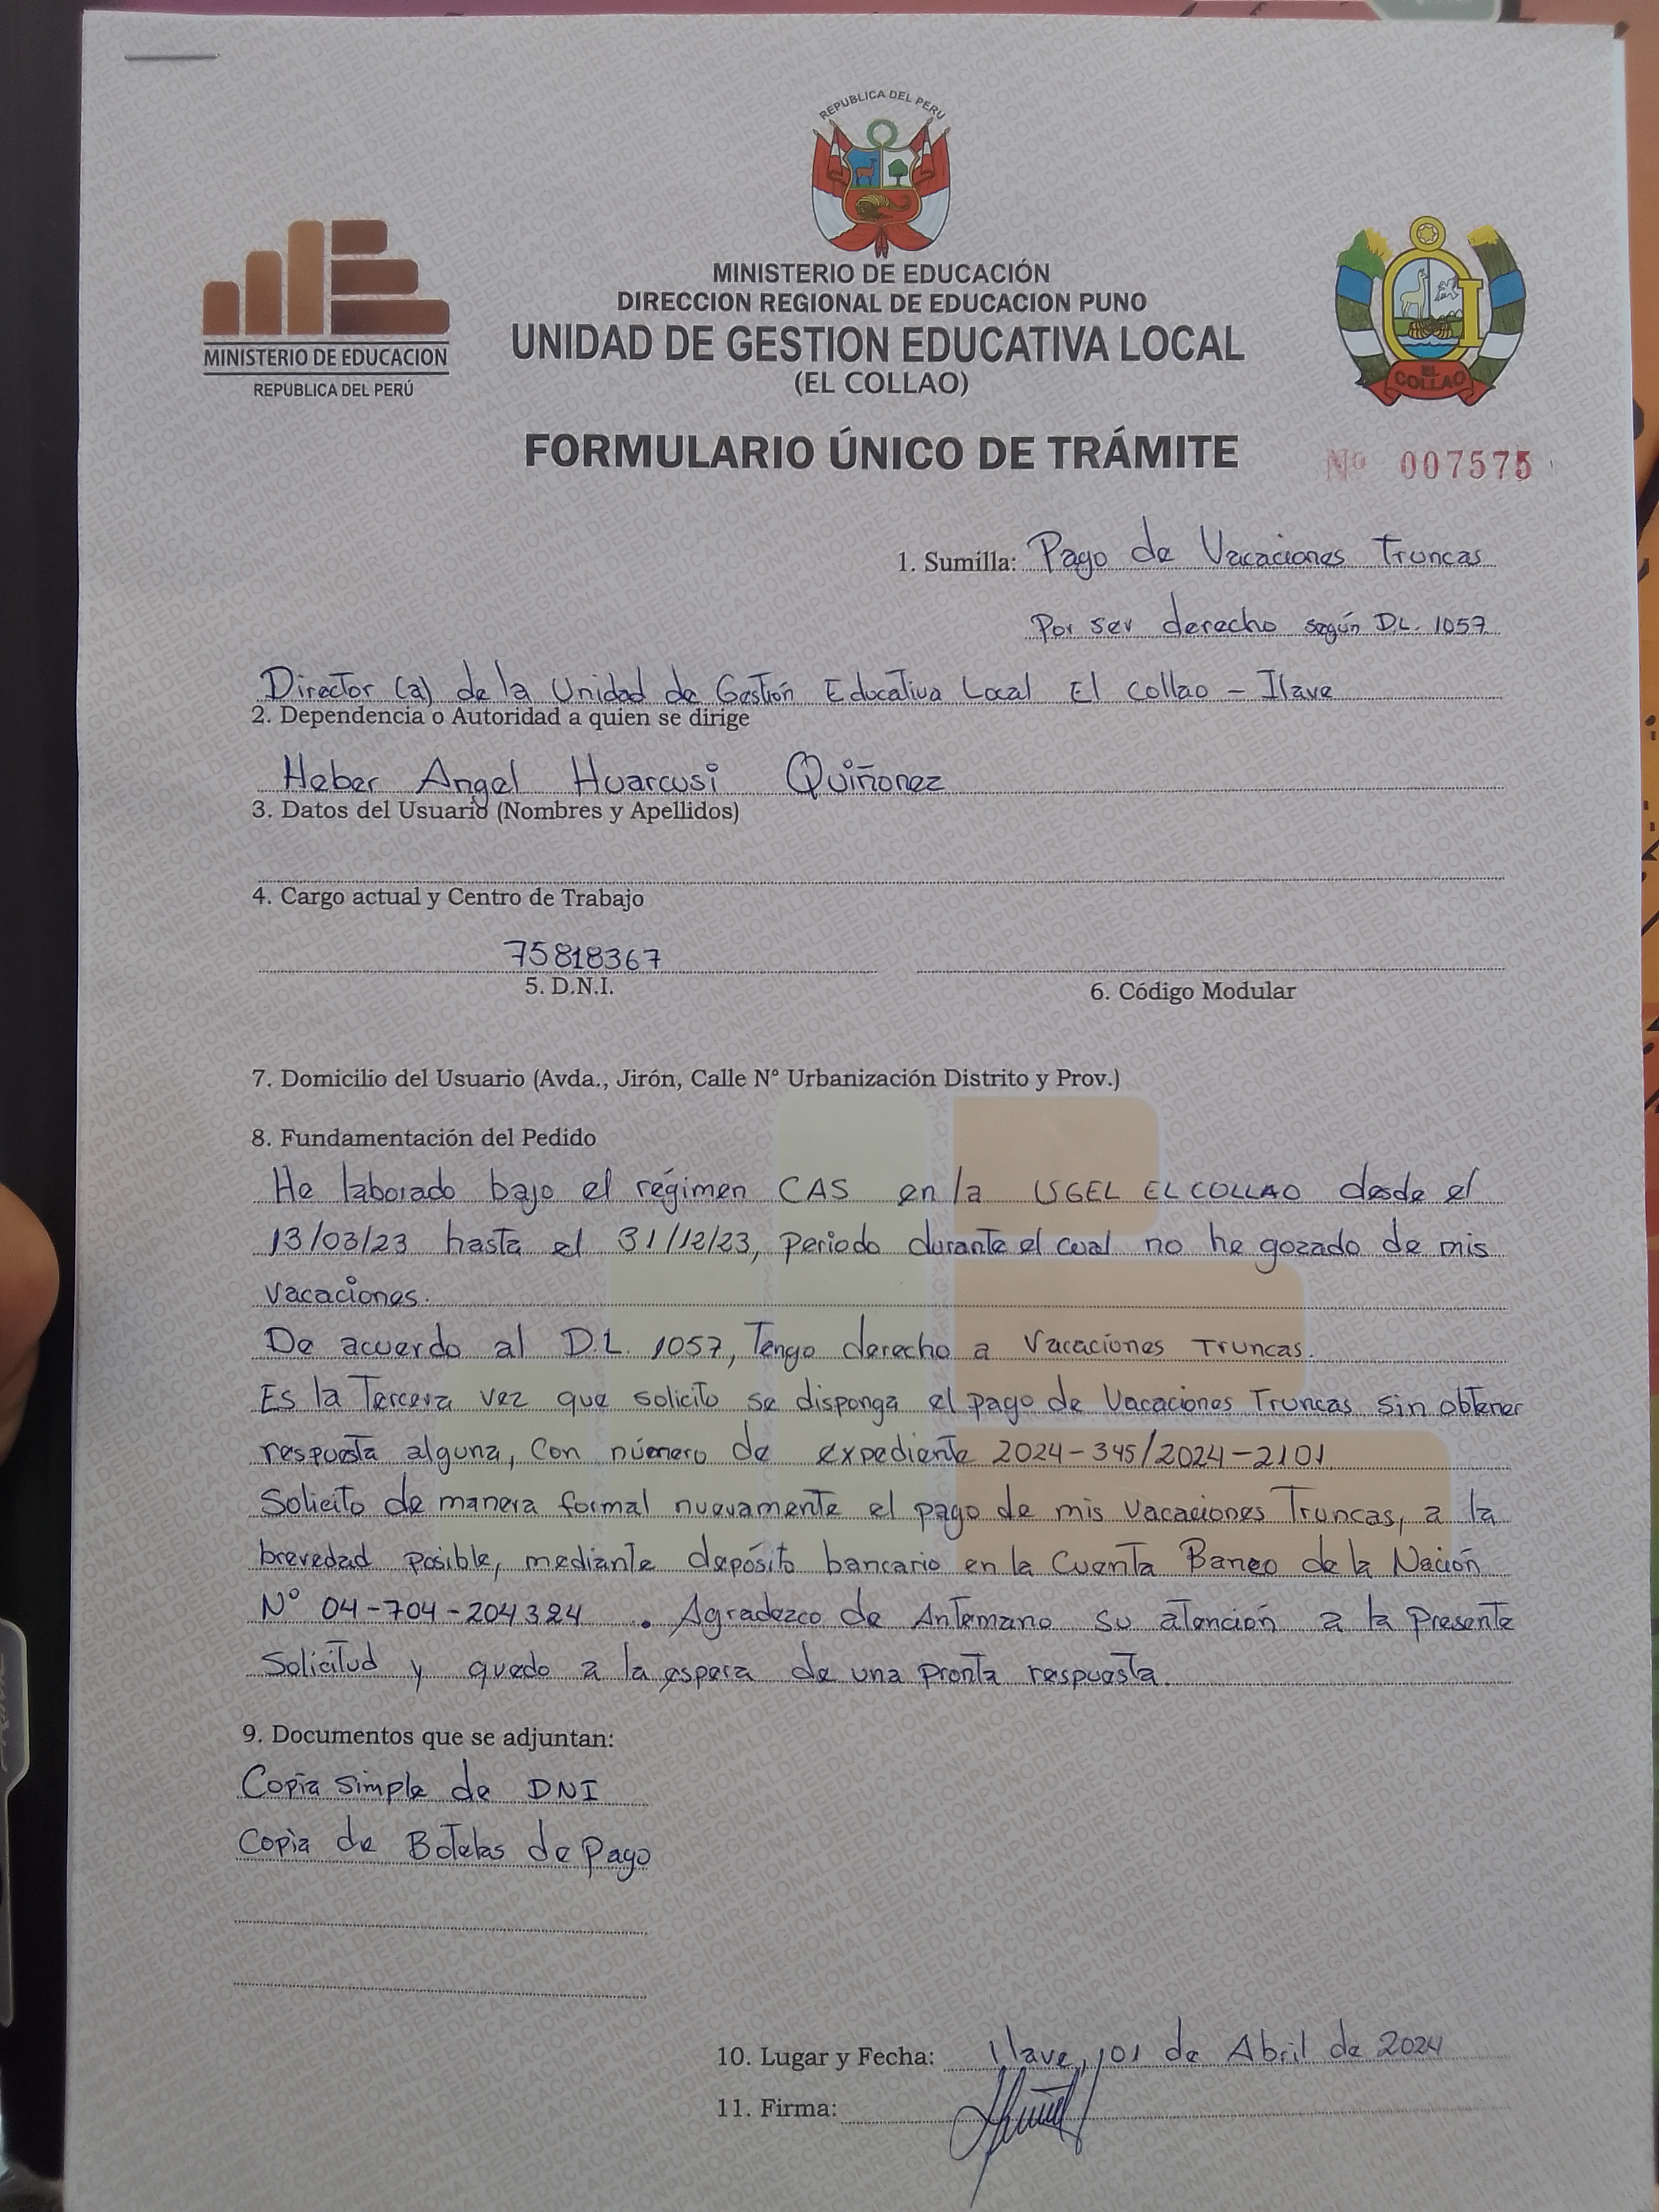 REPUBLICA DEL PERU
MINISTERIO DE EDUCACION
REPUBLICA DEL PERÚ
MINISTERIO DE EDUCACIÓN
DIRECCION REGIONAL DE EDUCACION PUNO
UNIDAD DE GESTION EDUCATIVA LOCAL
(EL COLLAO)
EL COLLAO
FORMULARIO ÚNICO DE TRÁMITE
Nº 007575
1. Sumilla: Pago de Vacaciones Truncas
Por ser derecho según D.L. 1057
Director (a) de la Unidad de Gestión Educativa Local El Collao - Ilave
2. Dependencia o Autoridad a quien se dirige
Heber Angel Huarcusi Quiñonez
3. Datos del Usuario (Nombres y Apellidos)
4. Cargo actual y Centro de Trabajo
75818367
5. D.N.I.
6. Código Modular
7. Domicilio del Usuario (Avda., Jirón, Calle N° Urbanización Distrito y Prov.)
8. Fundamentación del Pedido
He laborado bajo el régimen CAS en la UGEL EL COLLAO desde el
13/03/23 hasta el 31/12/23, periodo durante el cual no he gozado de mis
vacaciones.
De acuerdo al D.L. 1057, Tengo derecho a Vacaciones Truncas.
Es la Tercera vez que solicito se disponga el pago de Vacaciones Truncas sin obtener
respuesta alguna, con número de expediente 2024-345/2024-2101.
Solicito de manera formal nuevamente el pago de mis Vacaciones Truncas, a la
brevedad posible, mediante depósito bancario en la Cuenta Banco de la Nación
N° 04-704-204324 . Agradezco de Antemano su atención a la Presente
Solicitud y quedo a la espera de una pronta respuesta.
9. Documentos que se adjuntan:
Copia simple de DNI
Copia de Boletas de Pago
10. Lugar y Fecha: Ilave, 01 de Abril de 2024
11. Firma: